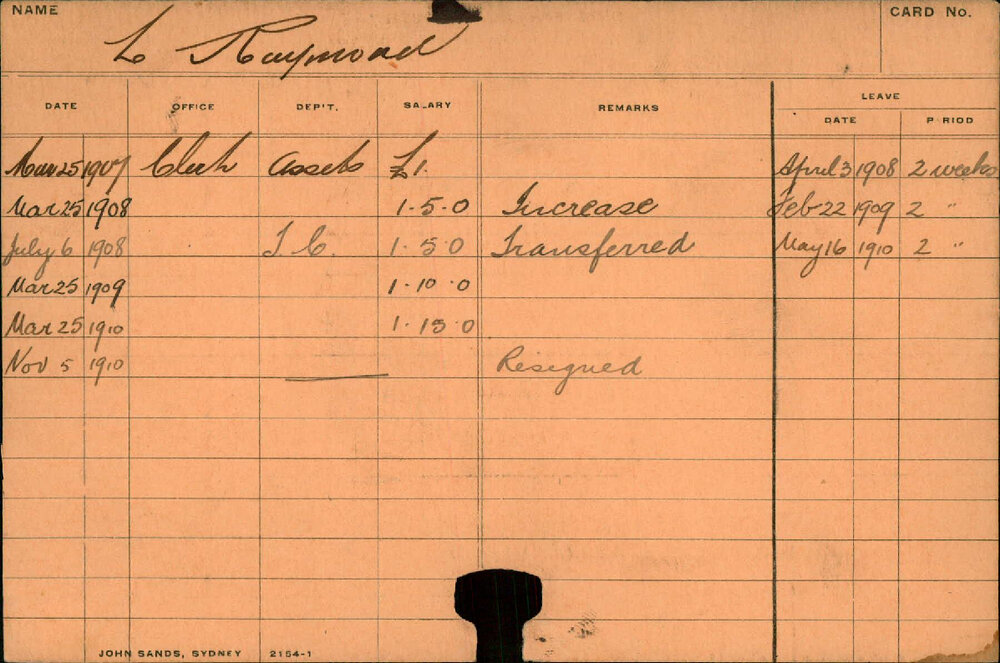 NAME L Raymond CARD No.
LEAVE
DATE OFFICE DEP'T. SALARY REMARKS DATE PERIOD
Mar 25 1907 Clerk Assets £1. April 3 1908 2 weeks
Mar 25 1908 1-5-0 Increase Feb 22 1909 2 "
July 6 1908 T. C. 1-5-0 Transferred May 16 1910 2 "
Mar 25 1909 1-10-0
Mar 25 1910 1-15-0
Nov 5 1910 Resigned
JOHN SANDS, SYDNEY 2154-1